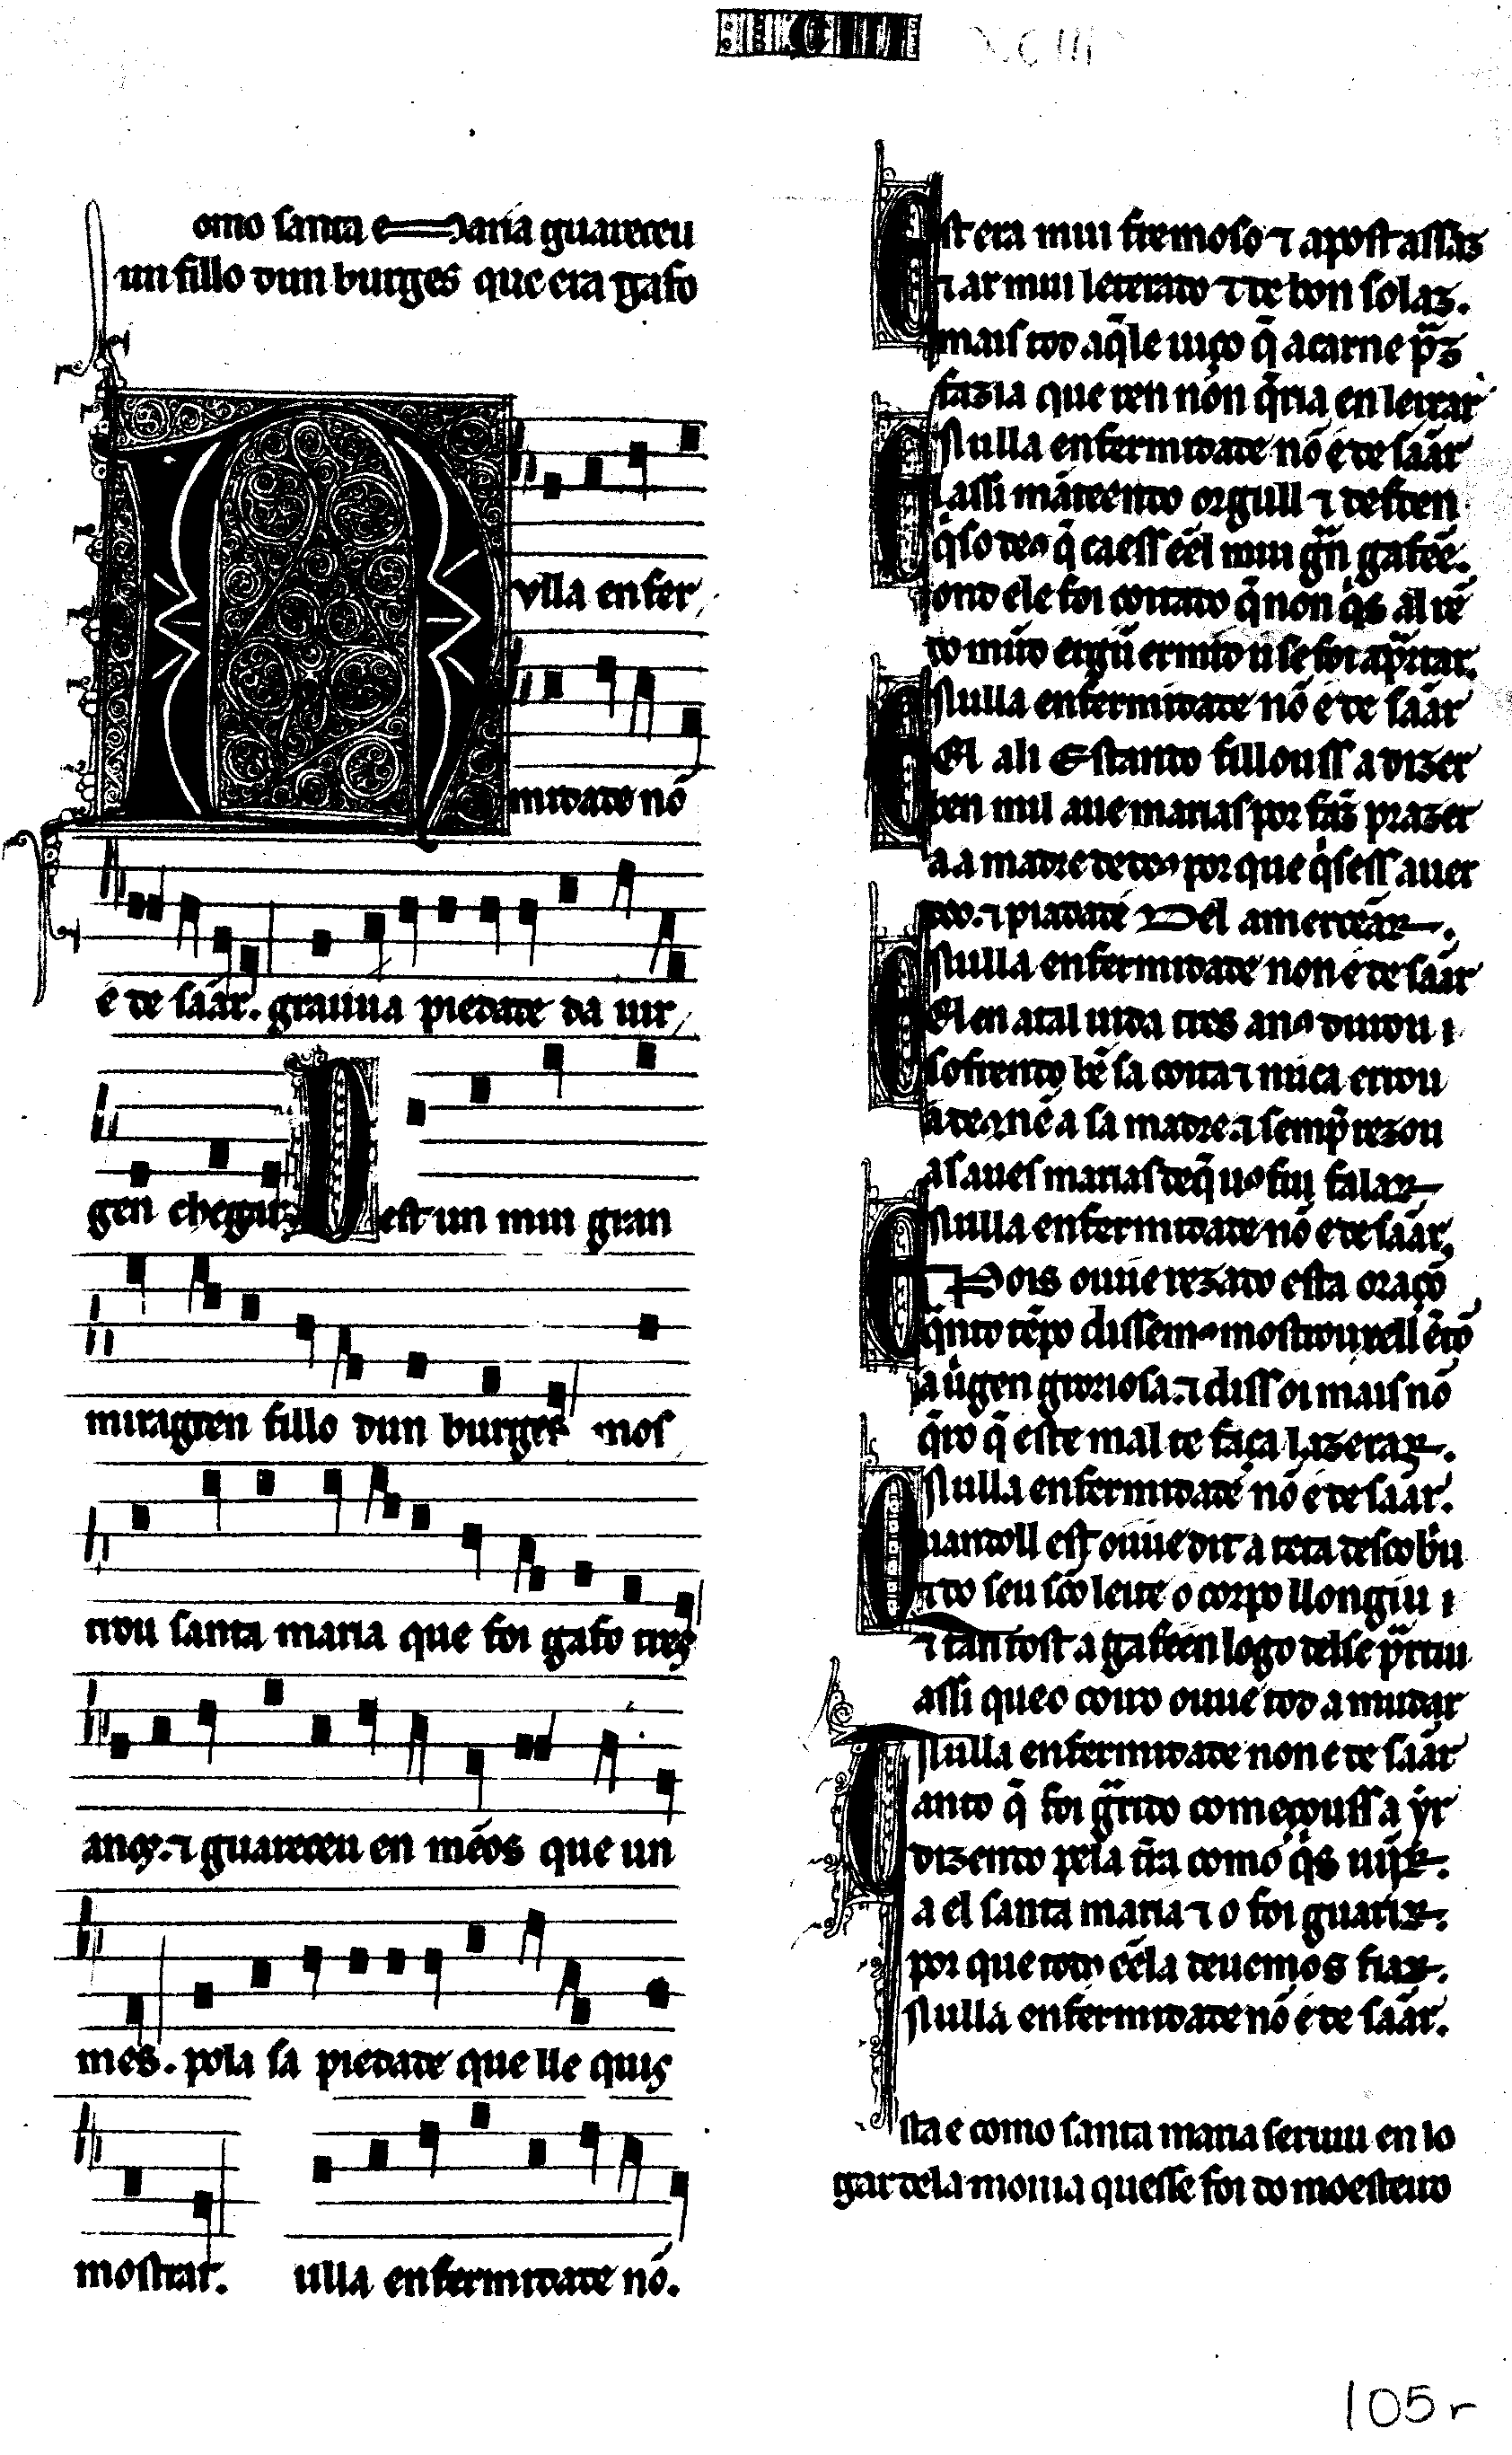 XCIII
omo santa Maria guareceu
un fillo dun burges que era gafo
Nvlla enfer
midade nõ
é de sãar. grauua piedade da uir
gen chegar. Dest un mui gran
miragren fillo dun burges mos
trou santa maria que foi gafo tres
anos. ⁊ guareceu en meos que un
mes. pola sa piedade que lle quis
mostrar. ulla enfermidade nõ.
Est era mui fremoso ⁊ apost assaz
⁊ ar mui leterado ⁊ de bon solaz.
mais tod aq̃le uiço q̃ a carne praz
fazia que ren nón q̃ria en leixar
Nulla enfermidade nõ é de sãar
E assi mãtẽendo orgull ⁊ desden
q̇so deꝰ q̃ caess ẽel mui grã gafẽe.
ond ele foi coitado q̃ non q̇s al rẽ
do mũdo ergũ ermidũ se foi aprtar.
Nulla enfermidade nõ é de sãar
El ali estando fillouss a dizer
ben mil aue marias por faz prazer
a a madre de deꝰ por que q̇sess auer
doo. ⁊ piadade Del amercẽar.
Nulla enfermidade non é de sãar
El en atal uida tres anꝰ durou
sofrendo bẽ sa coita ⁊ nũca errou
a deꝰ nẽ a sa madre. ⁊ semp̃ rezou
as aues marias de q̃ uꝰ fui falar
Nulla enfermidade nõ é de sãar
E Pois ouue rezado esta oraçõ
q̃nto tẽpo dissemꝰ mostrouxell ẽtõ
a uirgen groriosa. ⁊ diss oi mais nõ
q̃ro q̃ este mal te faça lazerar.
Nulla enfermidade nõ é de sãar.
Quandoll est ouue dit a teta descobriu
⁊ do seu sco leite o corpo llongiu
⁊ tan tost a gafeen logo delse prtiu
assi que o coiro ouue tod a mudar
Nulla enfermidade non é de sãar
Tanto q̃ foi grido começouss a yr
dizendo pela trra como q̇s uijr.
a el santa maria ⁊ o foi guarir.
por que todꝰ ẽela deuemos fiar.
Nulla enfermidade nõ é de sãar.
sta e como santa maria seruiu en lo
gar dela monia quesse foi do moesteiro
105r